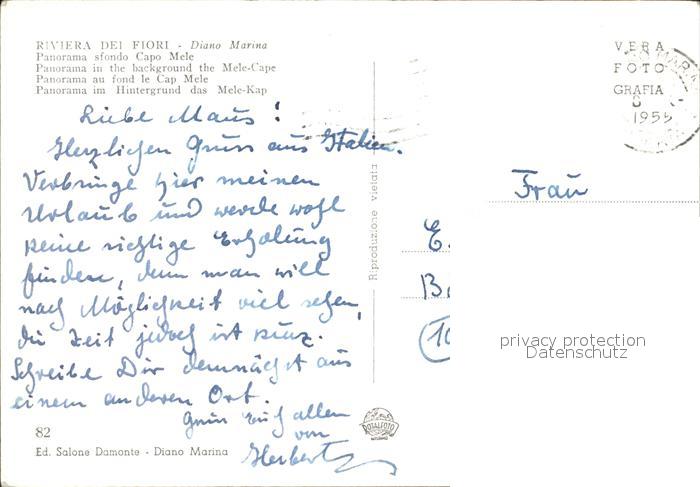 RIVIERA DEI FIORI - Diano Marina
Panorama sfondo Capo Mele
Panorama in the background the Mele-Cape
Panorama au fond le Cap Mele
Panorama im Hintergrund das Mele-Kap
Liebe Maus!
Herzlichen Gruss aus Italien.
Verbringe hier meinen
Urlaub und werde wohl
keine richtige Erholung
finden, denn man will
nach Möglichkeit viel sehen,
die Zeit jedoch ist kurz.
Schreibe Dir demnächst aus
einem anderen Ort.
Gruss Euch allen
von
Herbert
82
Ed. Salone Damonte - Diano Marina
Riproduzione vietata
ROTALFOTO
VERA
FOTO
GRAFIA
1955
Frau
E.
privacy protection
Datenschutz